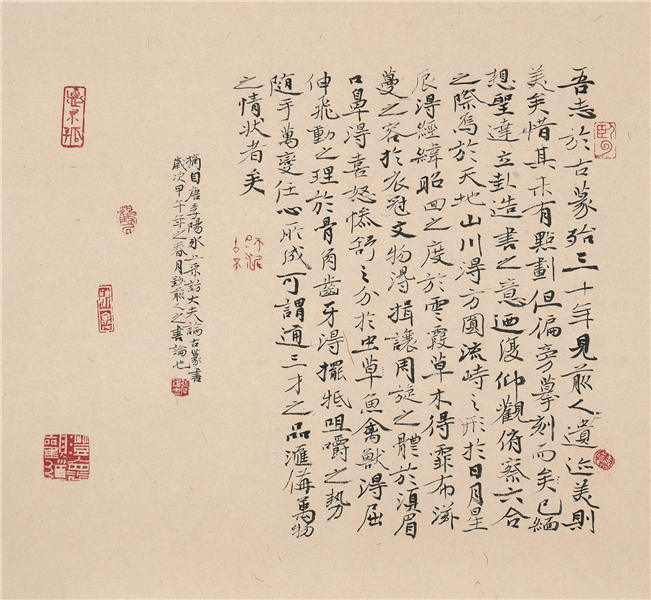 吾志於古篆殆三十年見前人遺迹美則
美矣惜其未有點劃但偏旁摹刻而矣已緬
想聖達立卦造書之意迺復仰觀俯察六合
之際焉於天地山川得方圓流峙之形於日月星
辰得經緯昭回之度於雲霞草木得霏布滋
蔓之容於衣冠文物得揖讓周旋之體於須眉
口鼻得喜怒慘舒之分於虫草魚禽獸得屈
伸飛動之理於骨角齒牙得擺抵咀嚼之勢
隨手萬變任心所成可謂通三才之品滙備萬物
之情狀者矣
摘自唐李陽冰上采訪大夫論古篆書
歲次甲午年之春月鈔前人之書論也